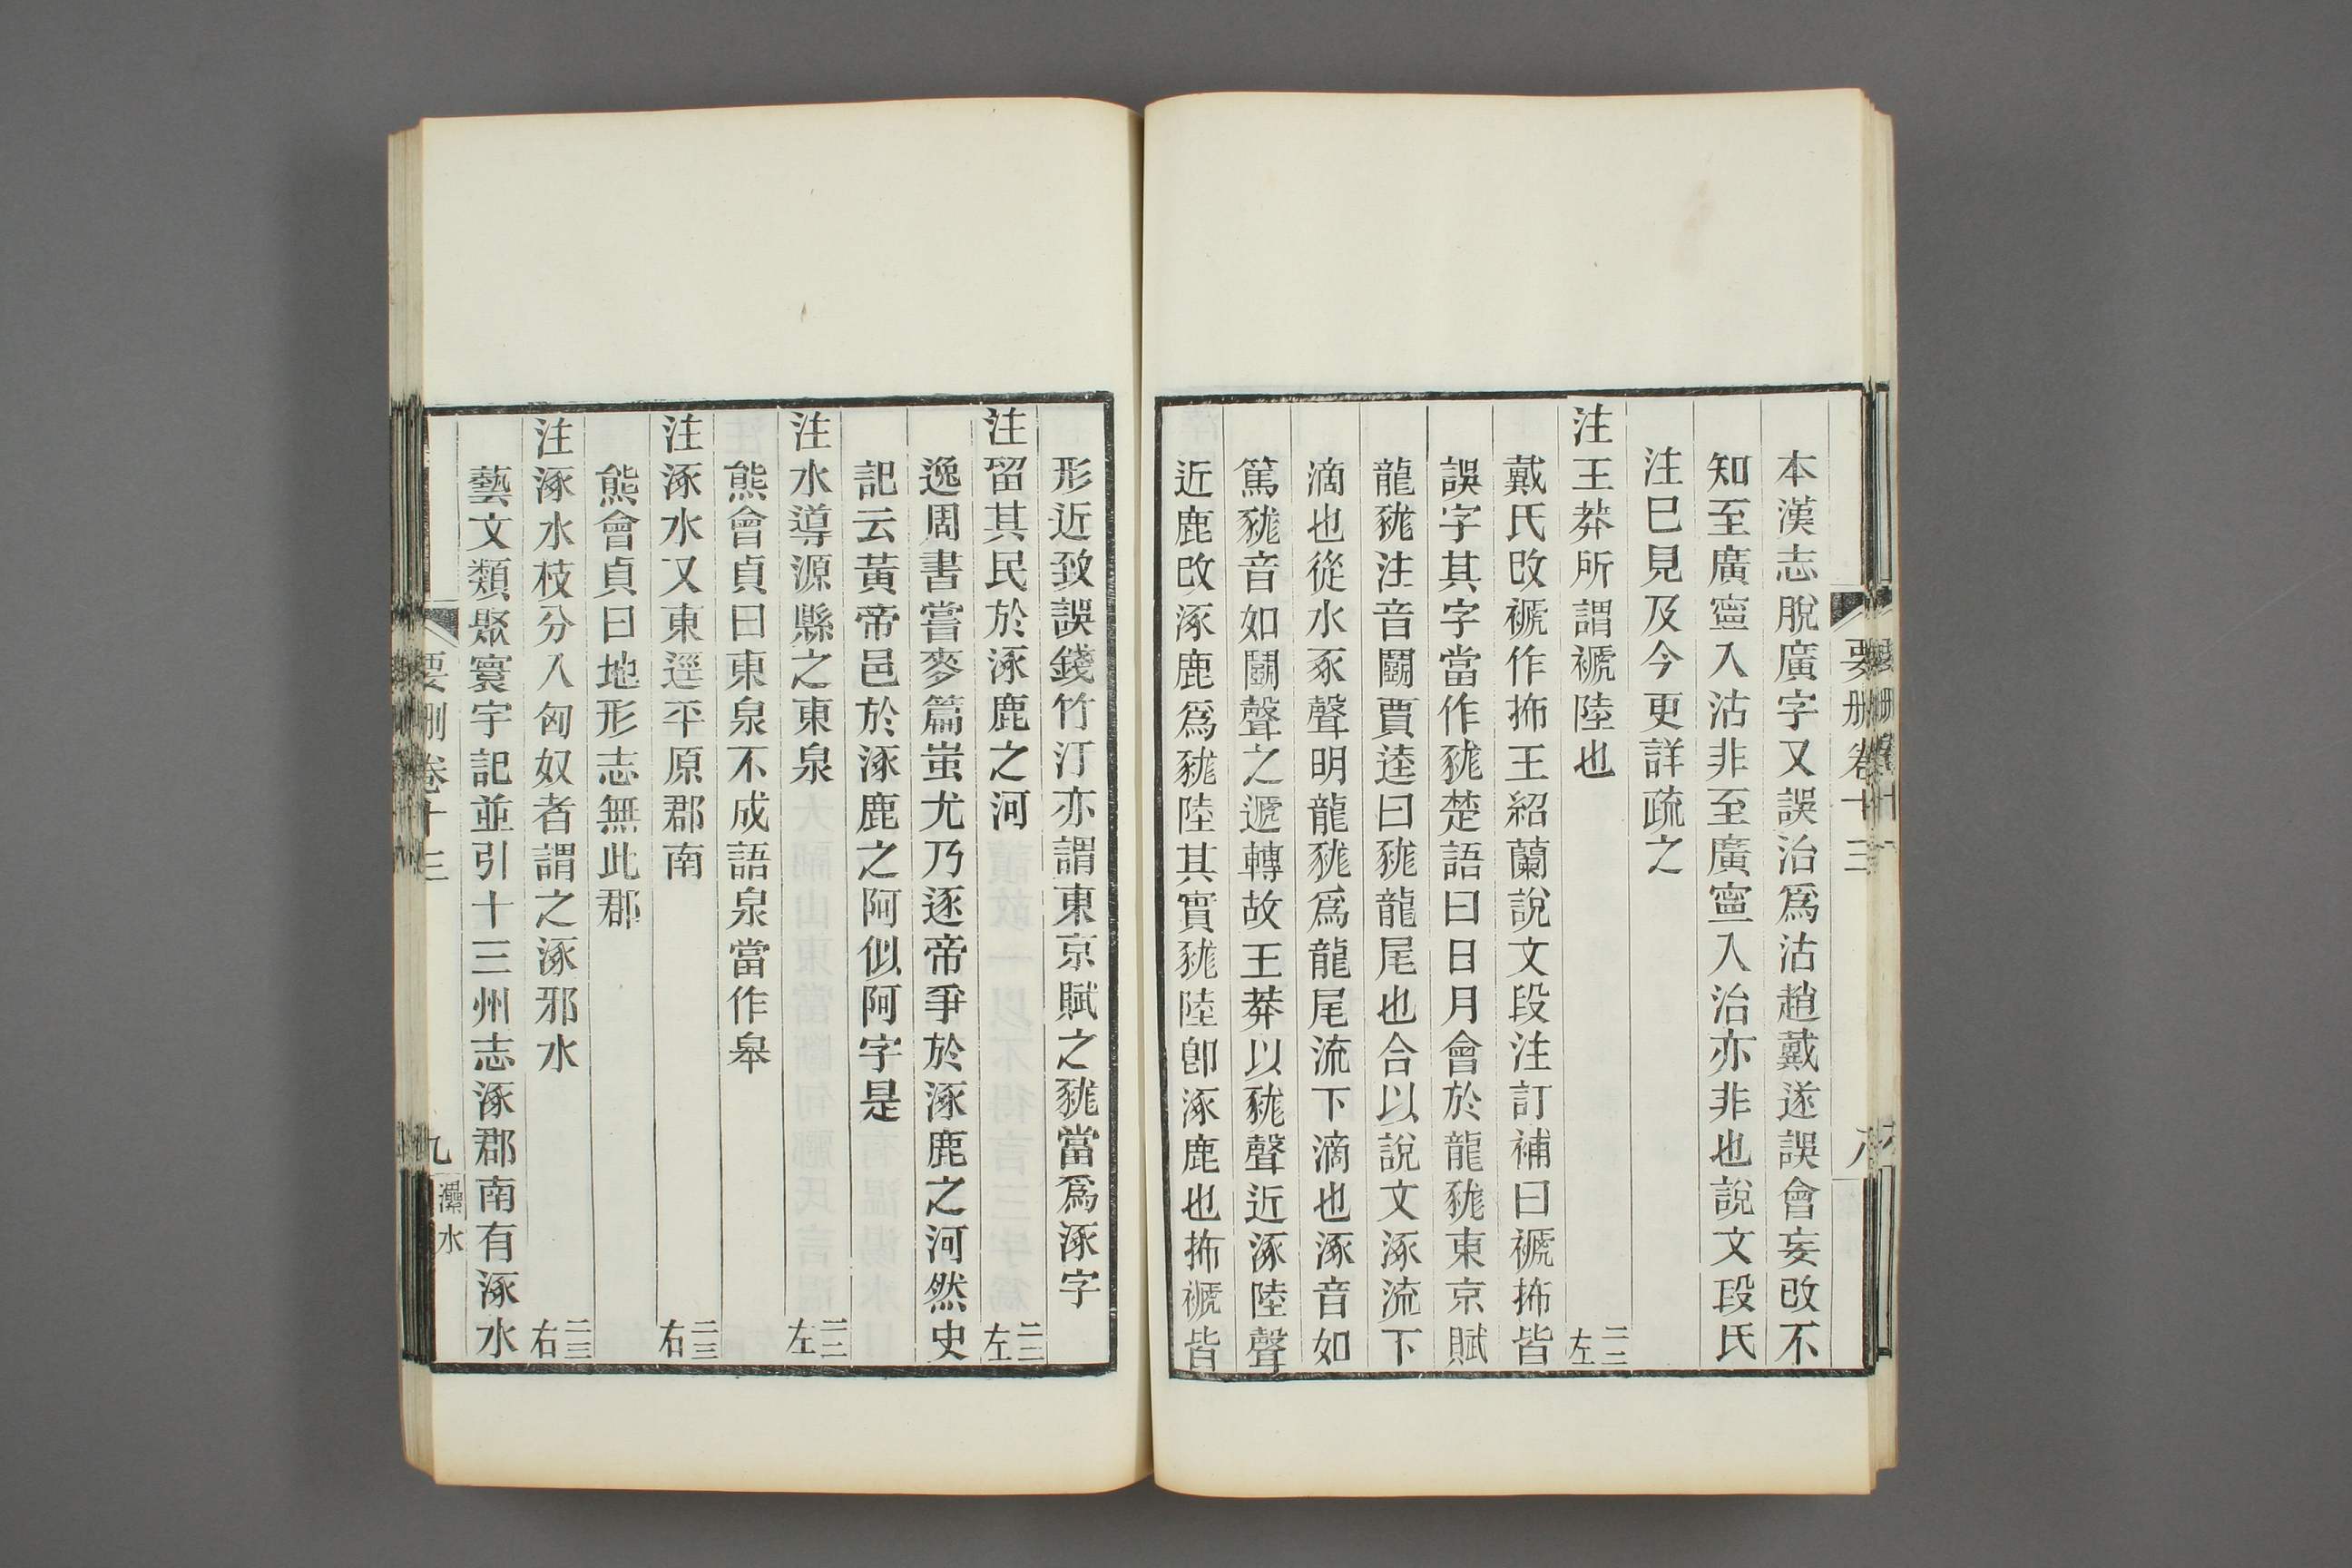 本漢志脫廣字又誤治爲沽趙戴遂誤會妄改不
知至廣寧入沽非至廣寧入治亦非也說文段氏
注巳見及今更詳疏之
注王莽所謂褫陸也 二二左
戴氏改褫作抪王紹蘭說文段注訂補曰褫抪皆
誤字其字當作𧱓楚語曰日月會於龍𧱓東京賦
龍𧱓注音鬭賈逵曰𧱓龍尾也合以說文涿流下
滴也從水豖聲明龍𧱓爲龍尾流下滴也涿音如
篤𧱓音如鬭聲之遞轉故王莽以𧱓聲近涿陸聲
近鹿改涿鹿爲𧱓陸其實𧱓陸卽涿鹿也抪褫皆
要刪卷十三 八
形近致誤錢竹汀亦謂東京賦之𧱓當爲涿字
注留其民於涿鹿之河 二二左
逸周書嘗麥篇蚩尤乃逐帝爭於涿鹿之河然史
記云黃帝邑於涿鹿之阿似阿字是
注水導源縣之東泉 二二左
熊會貞曰東泉不成語泉當作皋
注涿水又東逕平原郡南 二三右
熊會貞曰地形志無此郡
注涿水枝分入匈奴者謂之涿邪水 二三右
藝文類聚寰宇記並引十三州志涿郡南有涿水
要刪卷十三 九 㶟水